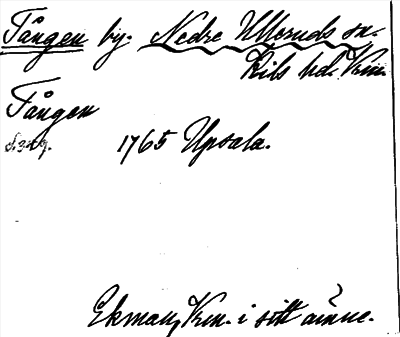 Tången by. Nedre Ulleruds sn.
Kils hd. Vrm.
Tången
1765 Upsala.
Ekman, Vrm. i sitt ämne.